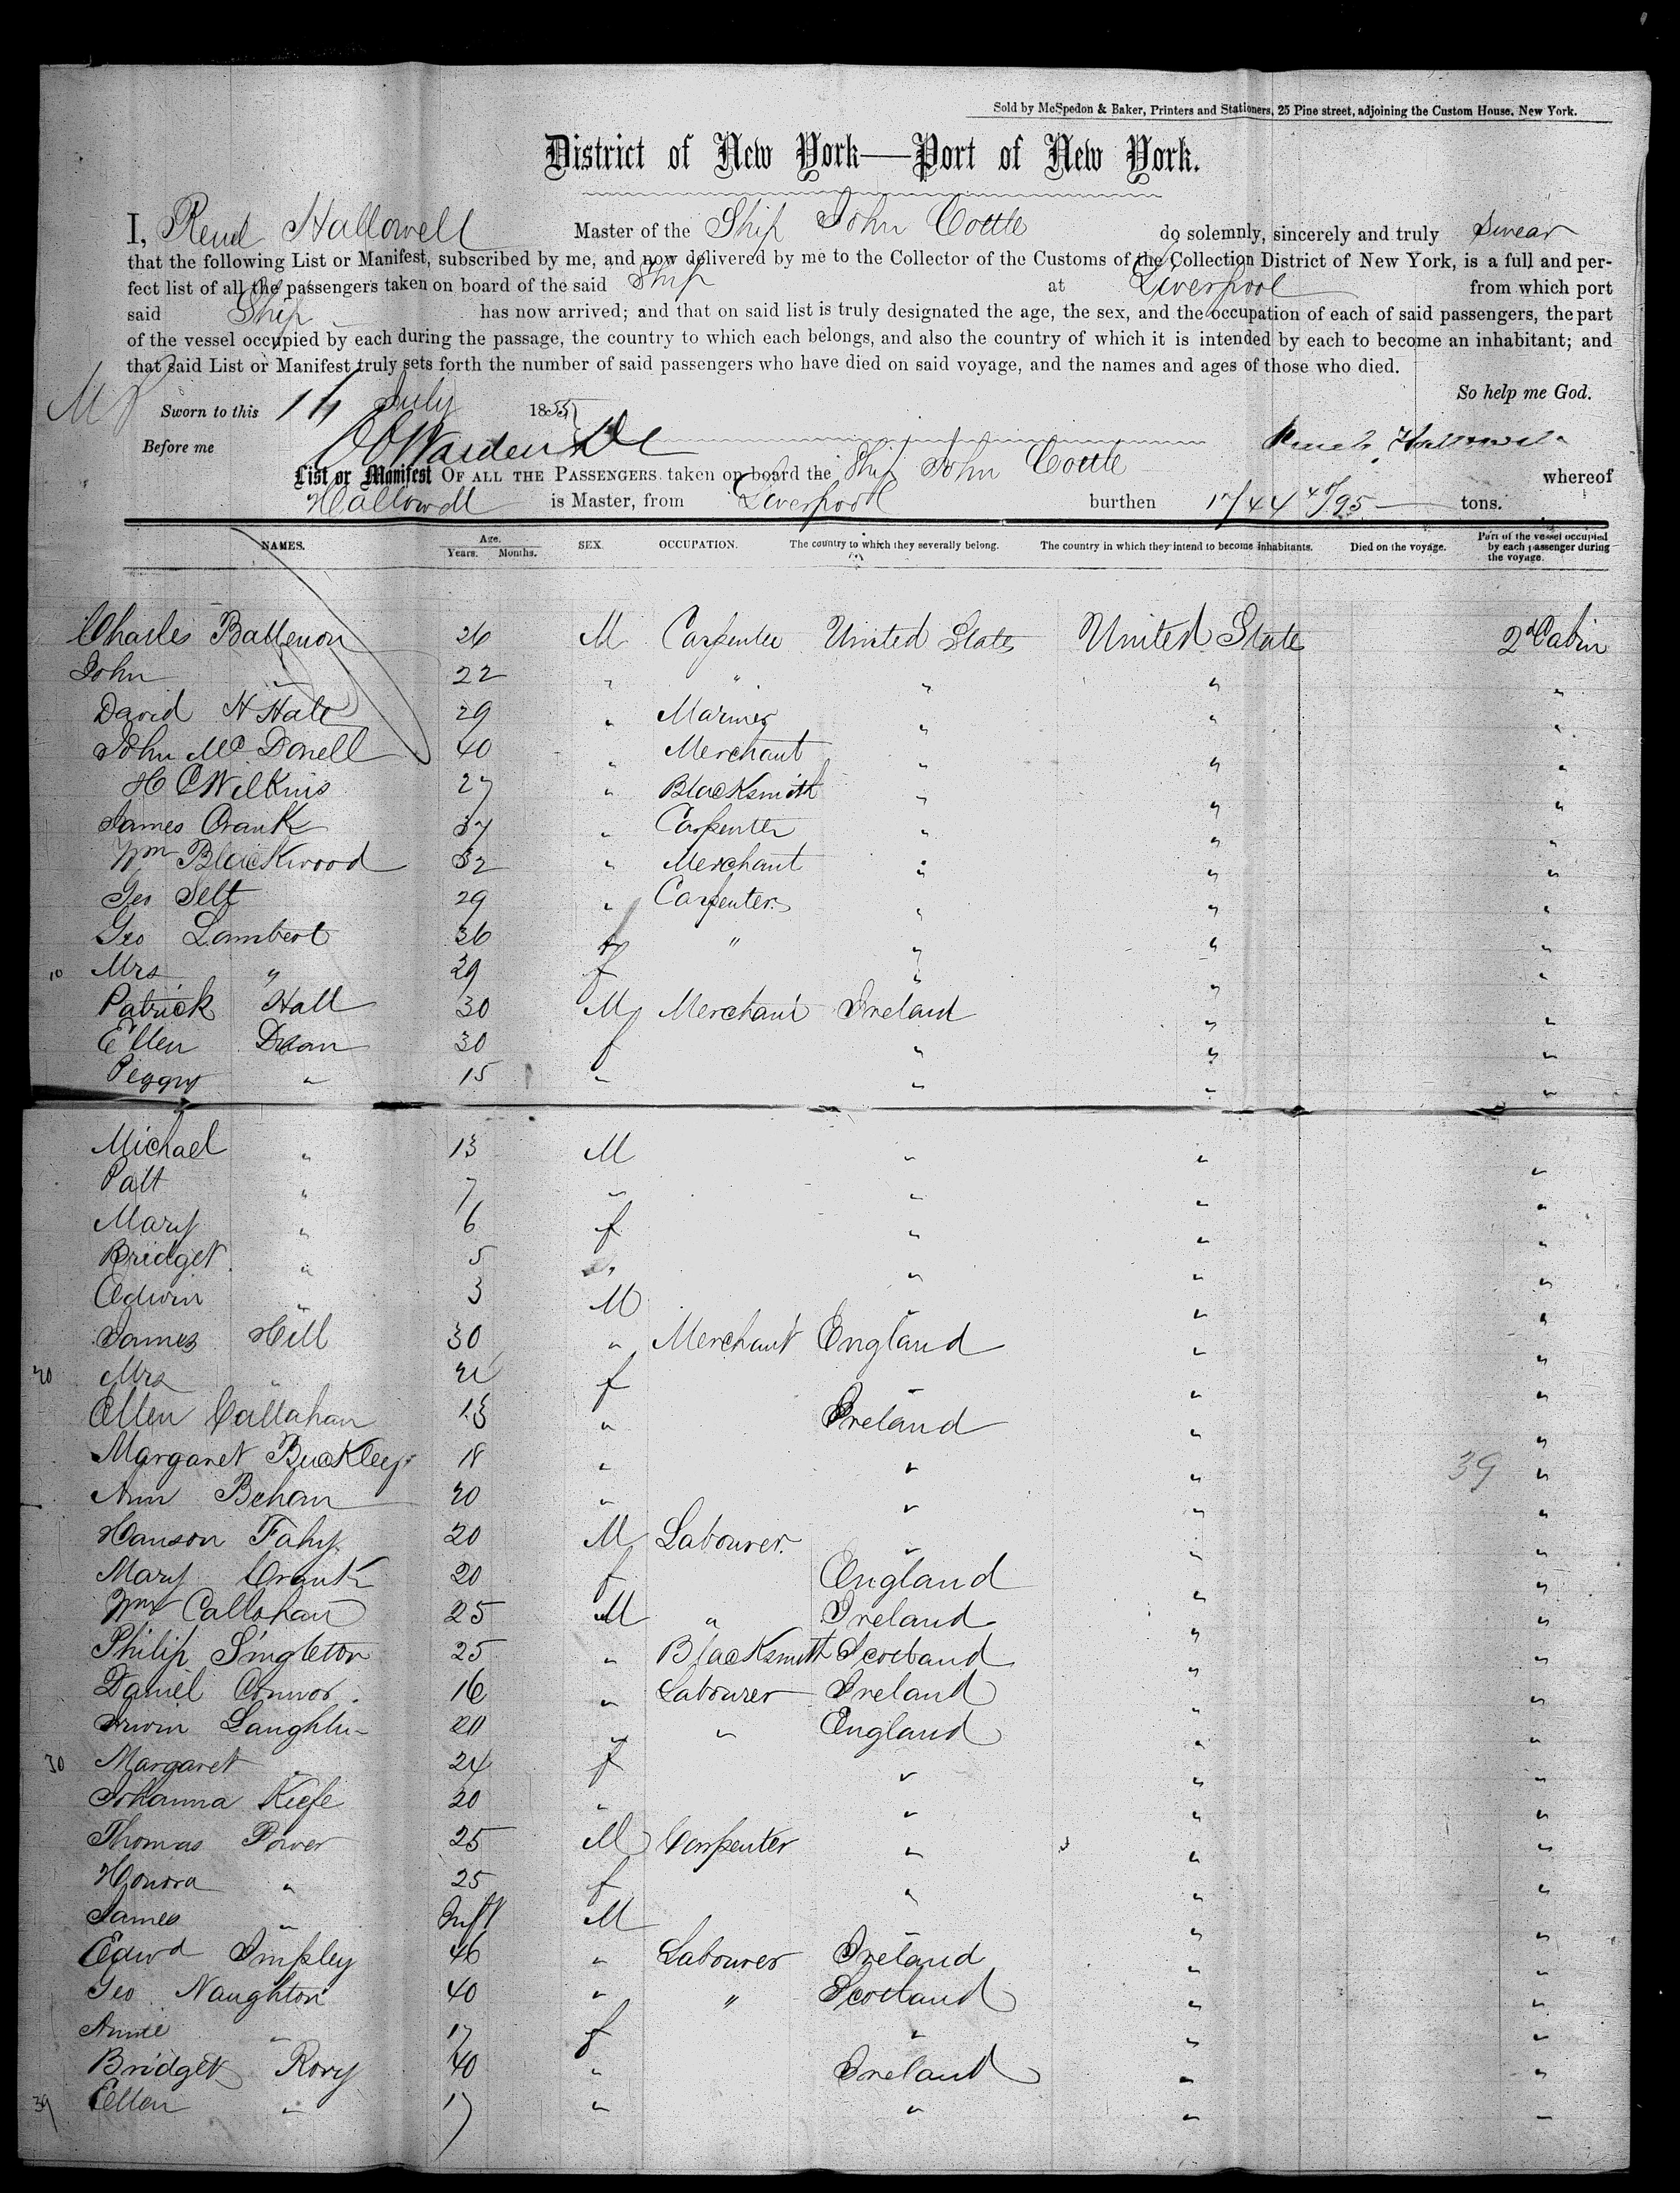 Sold by McSpedon & Baker, Printers and Stationers, 25 Pine street, adjoining the Custom House, New York.
District of New York—Port of New York.
I, Hallowell Master of the Ship John Cottle do solemnly, sincerely and truly swear
that the following List or Manifest, subscribed by me, and now delivered by me to the Collector of the Customs of the Collection District of New York, is a full and per-
fect list of all the passengers taken on board of the said Ship at Liverpool from which port
said Ship has now arrived; and that on said list is truly designated the age, the sex, and the occupation of each of said passengers, the part
of the vessel occupied by each during the passage, the country to which each belongs, and also the country of which it is intended by each to become an inhabitant; and
that said List or Manifest truly sets forth the number of said passengers who have died on said voyage, and the names and ages of those who died.
So help me God.
Sworn to this 14 July 1855
Before me
List or Manifest OF ALL THE PASSENGERS taken on board the Ship John Cottle whereof
Hallowell is Master, from Liverpool burthen 1744 tons.
NAMES. Age. Years. Months. SEX. OCCUPATION. The country to which they severally belong. The country in which they intend to become inhabitants. Died on the voyage. Part of the vessel occupied by each passenger during the voyage.
Charles 26 M Carpenter United States United States 2d Cabin
John " 22 " " " " "
David H Hale 29 " Mariner " " "
John Mc Donell 40 " Merchant " " "
H C Wilkins 27 " Blacksmith " " "
James Crank 37 " Carpenter " " "
Wm Blackwood 32 " Merchant " " "
Geo 29 " Carpenter " " "
Geo Lambert 36 " " " "
10 Mrs " 29 f " " "
Patrick Hall 30 M Merchant Ireland " "
Ellen 30 f " " "
Peggy " 15 " " " "
Michael " 13 M " " "
Patt " 7 " " " "
Mary " 6 f " " "
Bridget " 5 " " " "
Edwin " 3 M " " "
James Hill 30 " Merchant England " "
20 Mrs " f " " "
Ellen Callahan 13 " Ireland " "
Margaret Buckley 18 " " " 39 "
Ann Behan 20 " " " "
Hanson Fahy 20 M Labourer " " "
Mary Crank 20 f England " "
Wm Callahan 25 M " Ireland " "
Philip Singleton 25 " Blacksmith Scotland " "
Daniel Connor 16 " Labourer Ireland " "
Laughlin 20 " " England " "
30 Margaret " 24 f " " "
Johanna Kiefe 20 " " " "
Thomas Power 25 M Carpenter " " "
Honora " 25 f " " "
James " Inft M " "
Edwd Impley 46 " Labourer Ireland " "
Geo Naughton 40 " " Scotland " "
Annie " 17 f " " "
Bridget Rory 40 " Ireland " "
39 Ellen " 17 " " " "